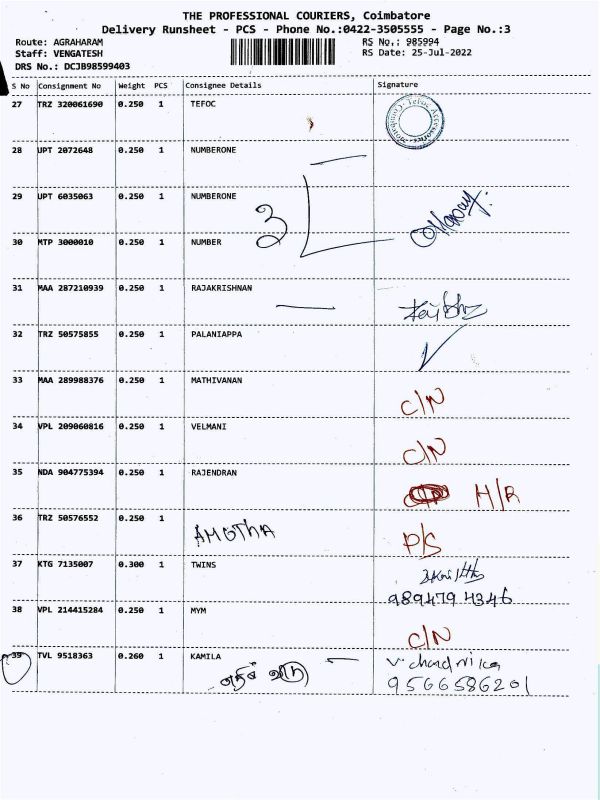 THE PROFESSIONAL COURIERS, Coimbatore
Delivery Runsheet - PCS - Phone No.:0422-3505555 - Page No.:3
Route: AGRAHARAM RS No.: 985994
Staff: VENGATESH RS Date: 25-Jul-2022
DRS No.: DCJB98599403
S No Consignment No Weight PCS Consignee Details Signature
27 TRZ 320061690 0.250 1 TEFOC
28 UPT 2072648 0.250 1 NUMBERONE
29 UPT 6035063 0.250 1 NUMBERONE
3
30 MTP 3000010 0.250 1 NUMBER
31 MAA 287210939 0.250 1 RAJAKRISHNAN
32 TRZ 50575855 0.250 1 PALANIAPPA
33 MAA 289988376 0.250 1 MATHIVANAN C/N
34 VPL 209060816 0.250 1 VELMANI C/N
35 NDA 904775394 0.250 1 RAJENDRAN H/R
36 TRZ 50576552 0.250 1 AMOTHA P/S
37 KTG 7135007 0.300 1 TWINS
9894794346
38 VPL 214415284 0.250 1 MYM C/N
39 TVL 9518363 0.260 1 KAMILA V. chandrika
9566586201